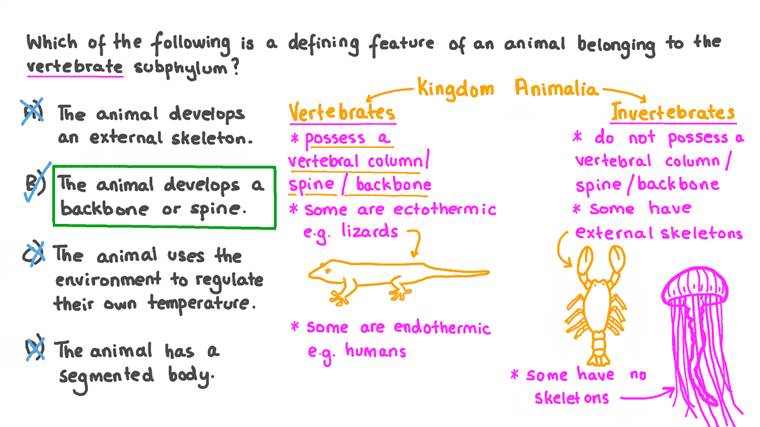 Which of the following is a defining feature of an animal belonging to the
vertebrate subphylum?
A) The animal develops
an external skeleton.
B) The animal develops a
backbone or spine.
C) The animal uses the
environment to regulate
their own temperature.
D) The animal has a
segmented body.
Kingdom Animalia
Vertebrates
* possess a
vertebral column/
spine/backbone
* some are ectothermic
e.g. lizards
* some are endothermic
e.g. humans
Invertebrates
* do not possess a
vertebral column/
spine/backbone
* some have
external skeletons
* some have no
skeletons